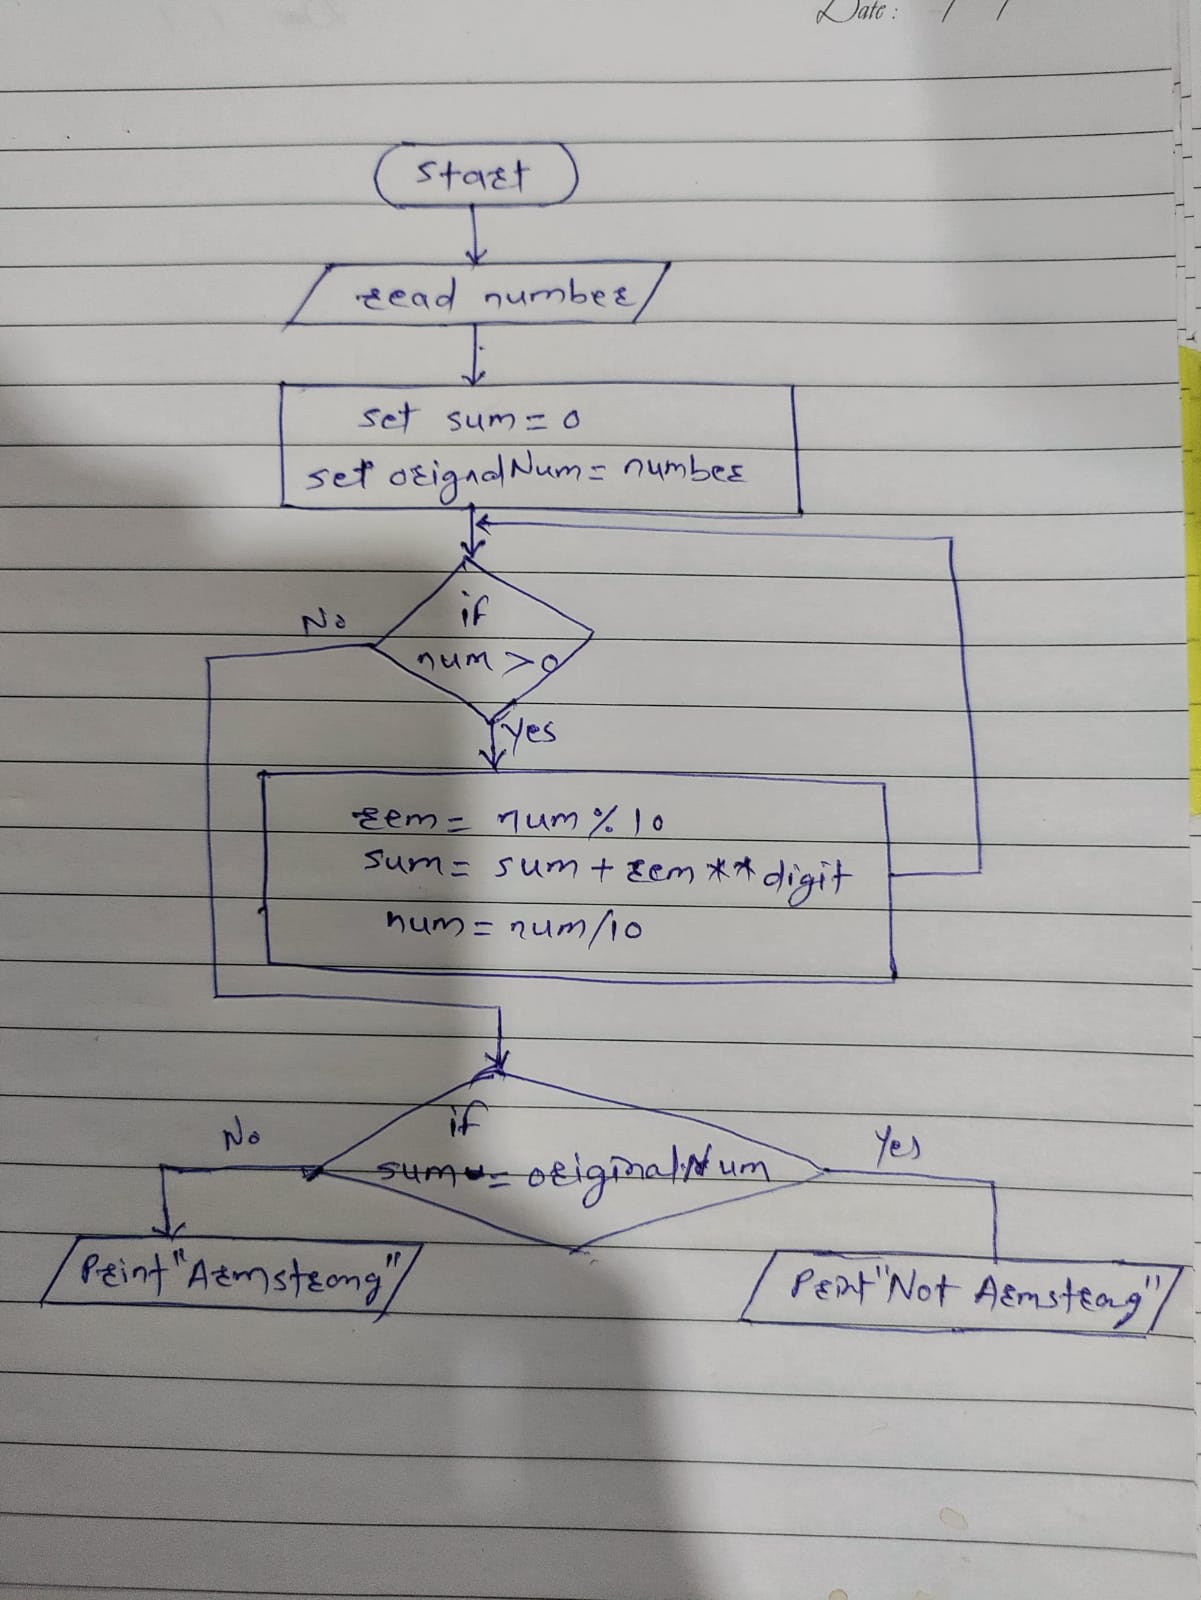 Date : / /
start
read number
set sum = 0
set orignalNum = number
if
num > 0
No
Yes
rem = num % 10
sum = sum + rem ** digit
num = num/10
if
sum = originalNum
No
Yes
Print "Armstrong"
Print "Not Armstrong"